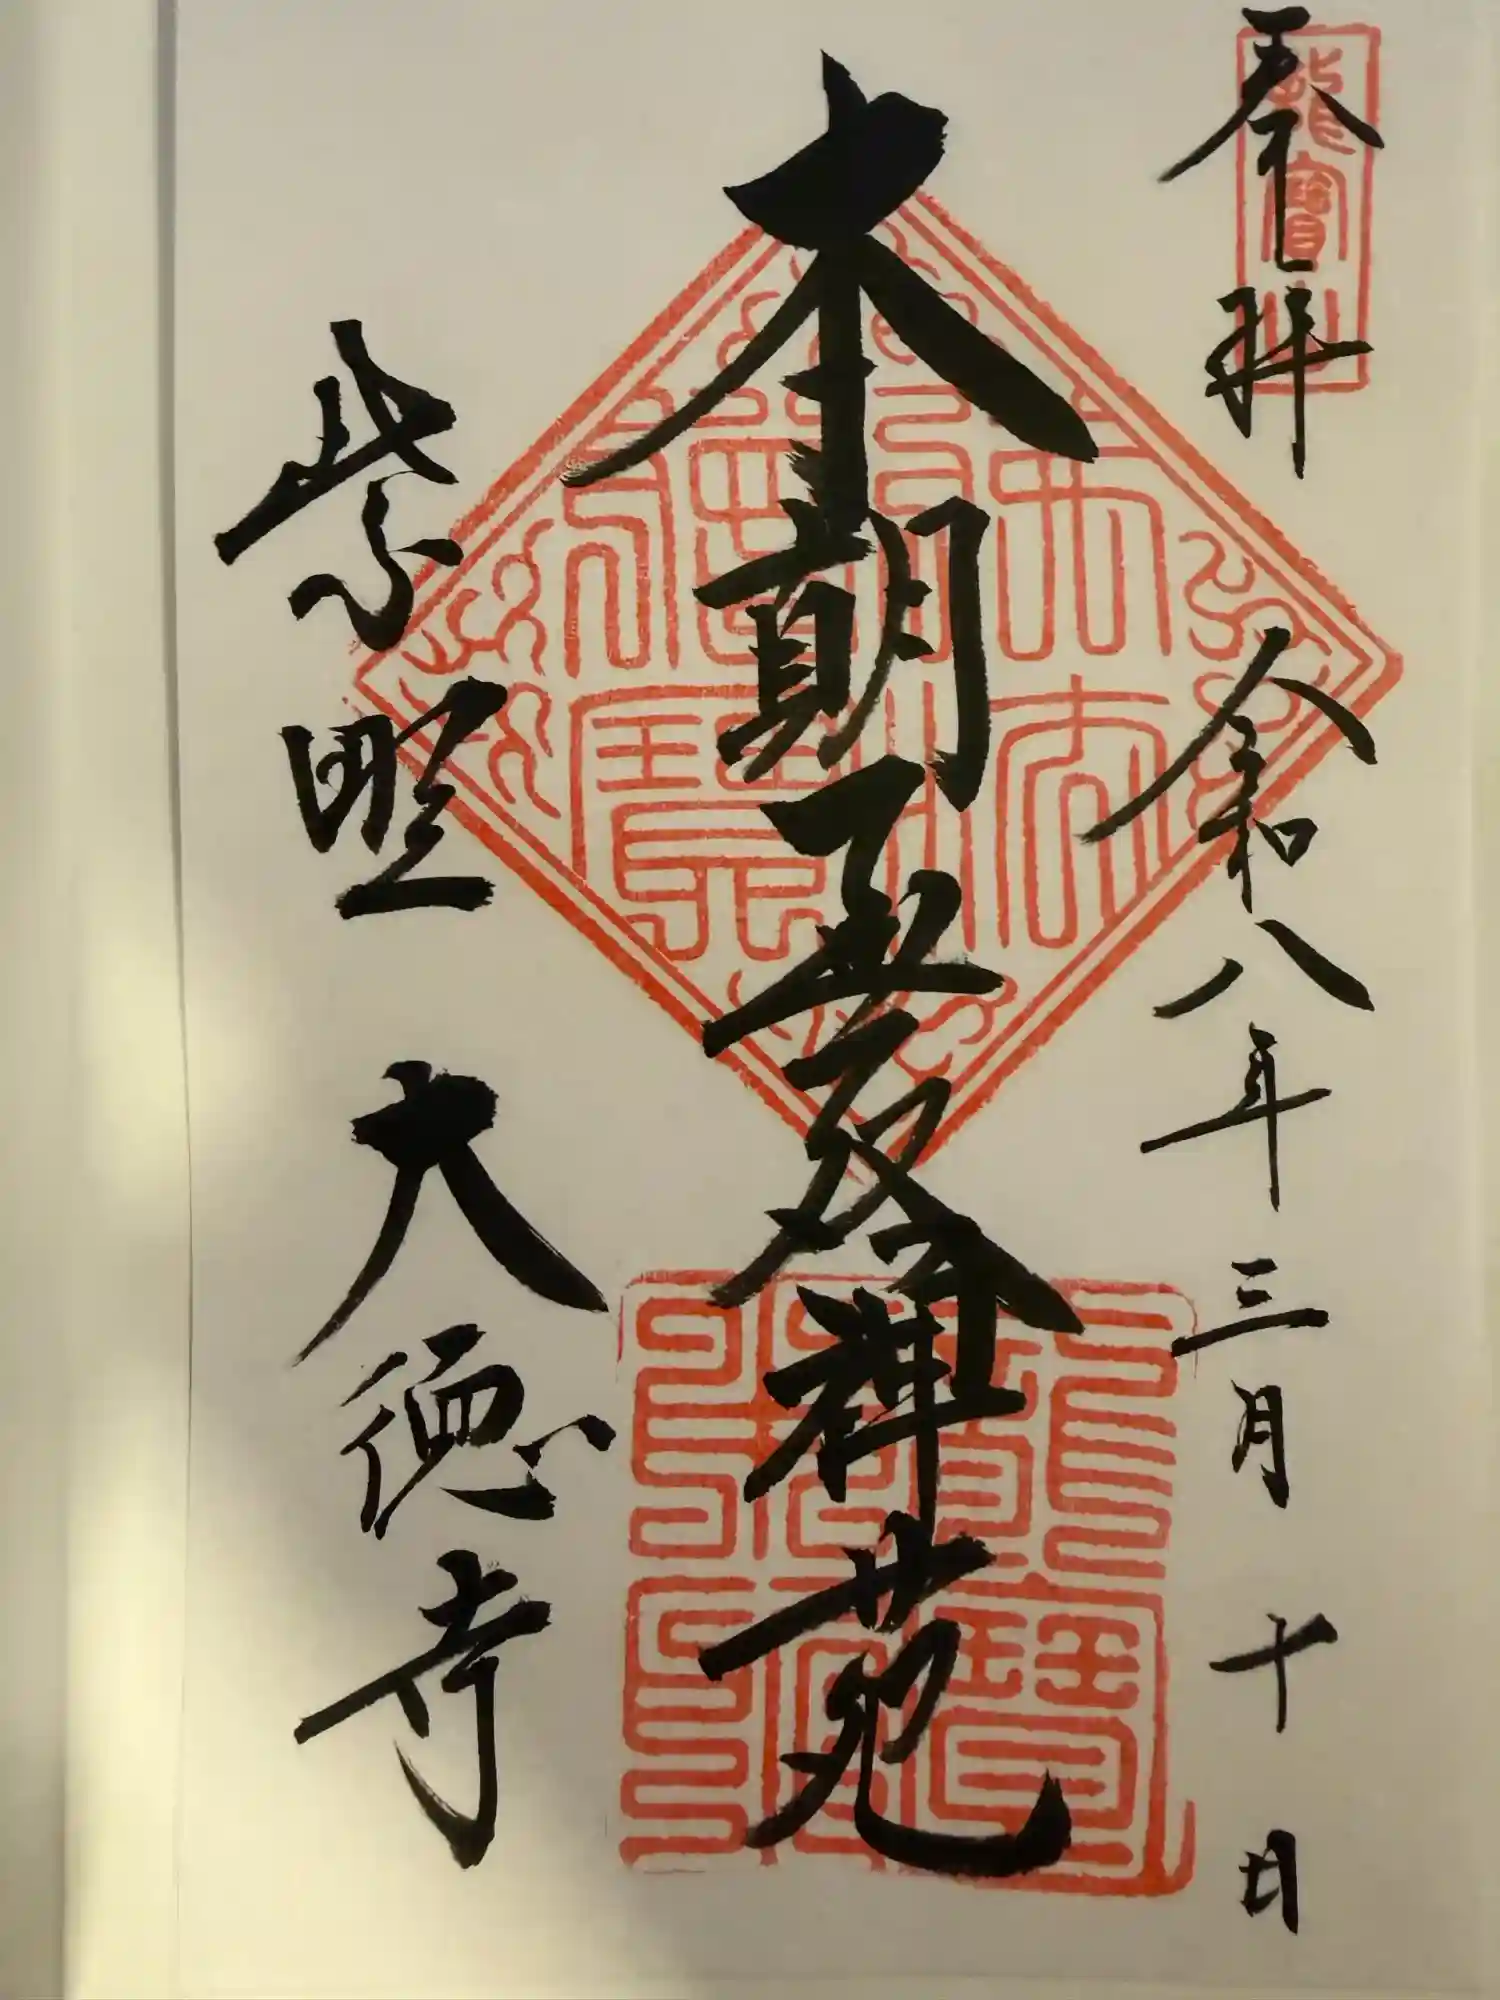 龍寶山
奉拝 令和八年三月十日
本朝無双禅苑
紫野 大徳寺